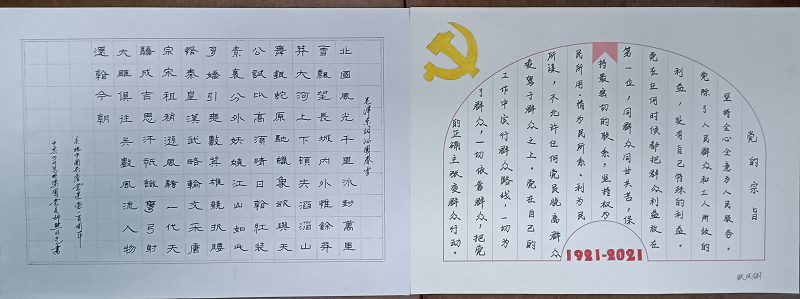 毛澤東詞沁園春雪
北國風光千里冰封萬里
雪飄望長城內外惟餘莽
莽大河上下頓失滔滔山
舞銀蛇原馳蠟象欲與天
公試比高須晴日看紅裝
素裹分外妖嬈江山如此
多嬌引無數英雄競折腰
惜秦皇漢武略輸文采唐
宗宋祖稍遜風騷一代天
驕成吉思汗祇識彎弓射
大雕俱往矣數風流人物
還看今朝
庆祝中国共产党建党一百周年
党的宗旨
坚持全心全意为人民服务。
党除了人民群众和工人阶级的
利益,没有自己特殊的利益。
党在任何时候都把群众利益放在
第一位,同群众同甘共苦,保
持最密切的联系,坚持权为
民所用、情为民所系、利为民
所谋,不允许任何党员脱离群众
凌驾于群众之上。党在自己的
工作中实行群众路线,一切为
了群众,一切依靠群众,把党
的正确主张变为群众行动。
1921-2021